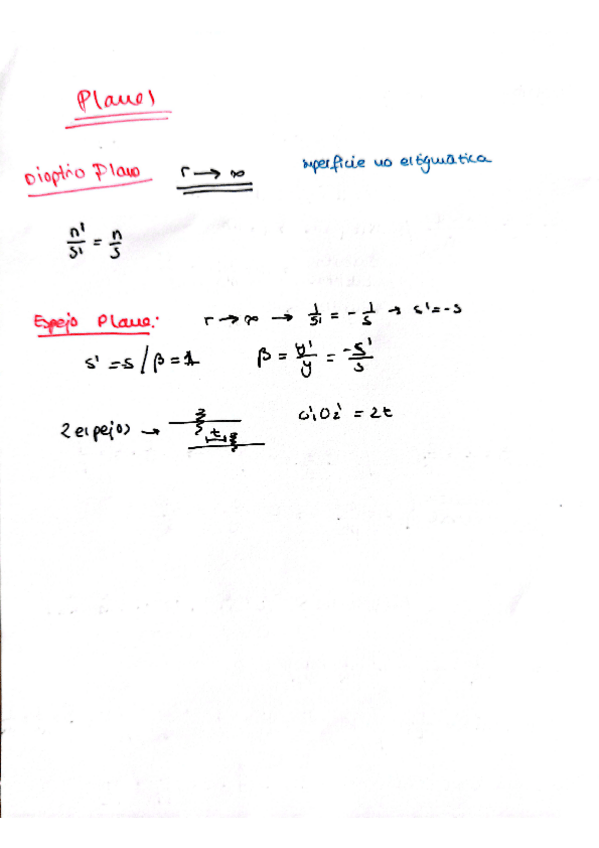 Planos
Dioptrio Plano r → ∞ superficie no estigmática
n'/s' = n/s
Espejo Plano: r → ∞ → 1/s' = - 1/s → s' = -s
s' = -s / β = 1 β = y'/y = -s'/s
2 espejos → t O'₁O₂' = 2t